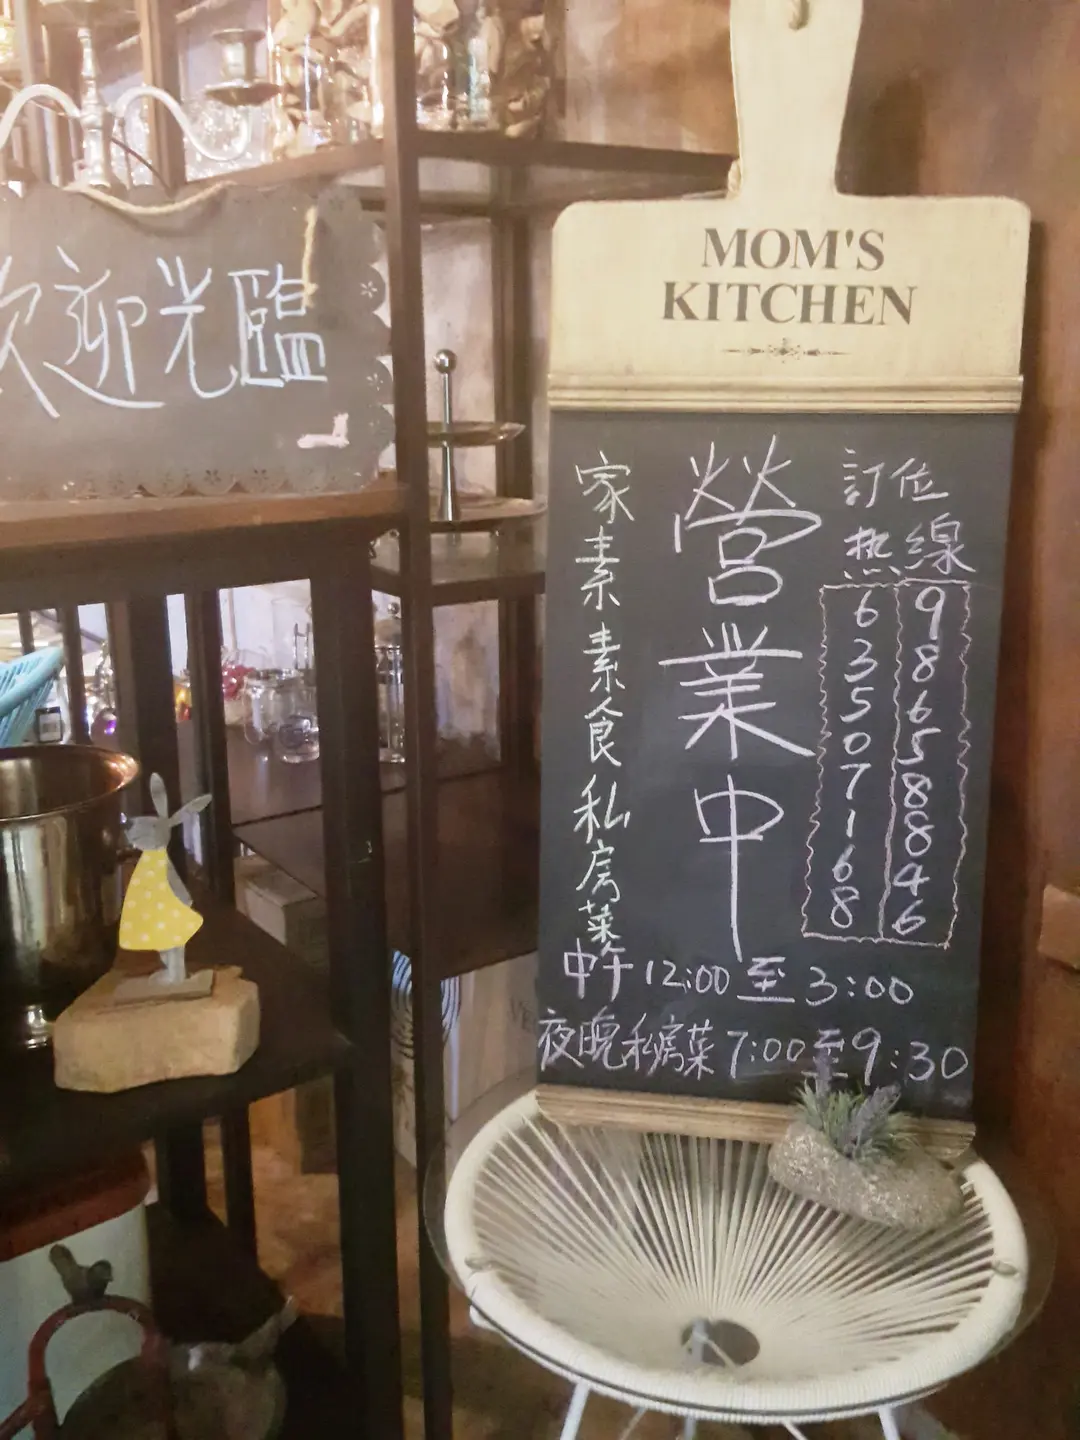 歡迎光臨
MOM'S
KITCHEN
訂位
热線
98658846
63507168
營業中
家素素食私房菜
中午12:00至3:00
夜晚私房菜7:00至9:30